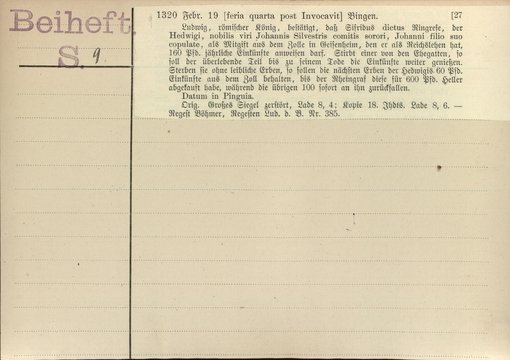 Beiheft.
S. 9
1320 Febr. 19 [feria quarta post Invocavit] Bingen. [27
Ludwig, römischer König, bestätigt, daß Sifridus dictus Ringrefe, der
Hedwigi, nobilis viri Johannis Silvestris comitis sorori, Johanni filio suo
copulate, als Mitgift aus dem Zolle in Geisenheim, den er als Reichslehen hat,
160 Pfd. jährliche Einkünfte anweisen darf. Stirbt einer von den Ehegatten, so
soll der überlebende Teil bis zu seinem Tode die Einkünfte weiter genießen.
Sterben sie ohne leibliche Erben, so sollen die nächsten Erben der Hedwigis 60 Pfd.
Einkünfte aus dem Zoll behalten, bis der Rheingraf diese für 600 Pfd. Heller
abgekauft habe, während die übrigen 100 sofort an ihn zurückfallen.
Datum in Pinguia.
Orig. Großes Siegel zerstört, Lade 8, 4; Kopie 18. Jhdts. Lade 8, 6. —
Regest Böhmer, Regesten Lud. d. B. Nr. 385.